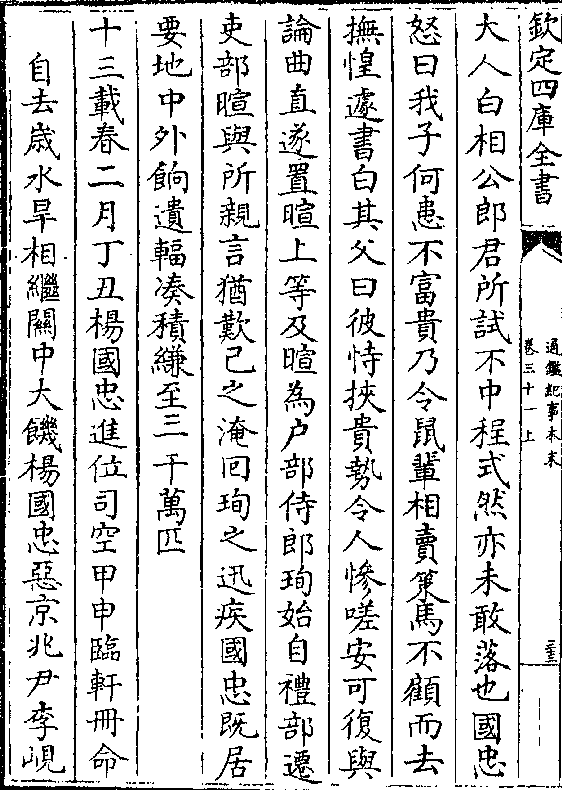 欽定四庫全書
通鑑紀事本末
卷三十一上
大人白相公郎君所試不中程式然亦未敢落也國忠
怒曰我子何患不富貴乃令鼠輩相賣策馬不顧而去
撫惶遽書白其父曰彼恃挾貴勢令人慘嗟安可復與
論曲直遂置暄上等及暄為户部侍郎珣始自禮部遷
吏部暄與所親言猶歎己之淹回珣之迅疾國忠既居
要地中外餉遺輻湊積縑至三千萬匹
十三載春二月丁丑楊國忠進位司空甲申臨軒冊命
自去歲水旱相繼關中大饑楊國忠惡京兆尹李峴